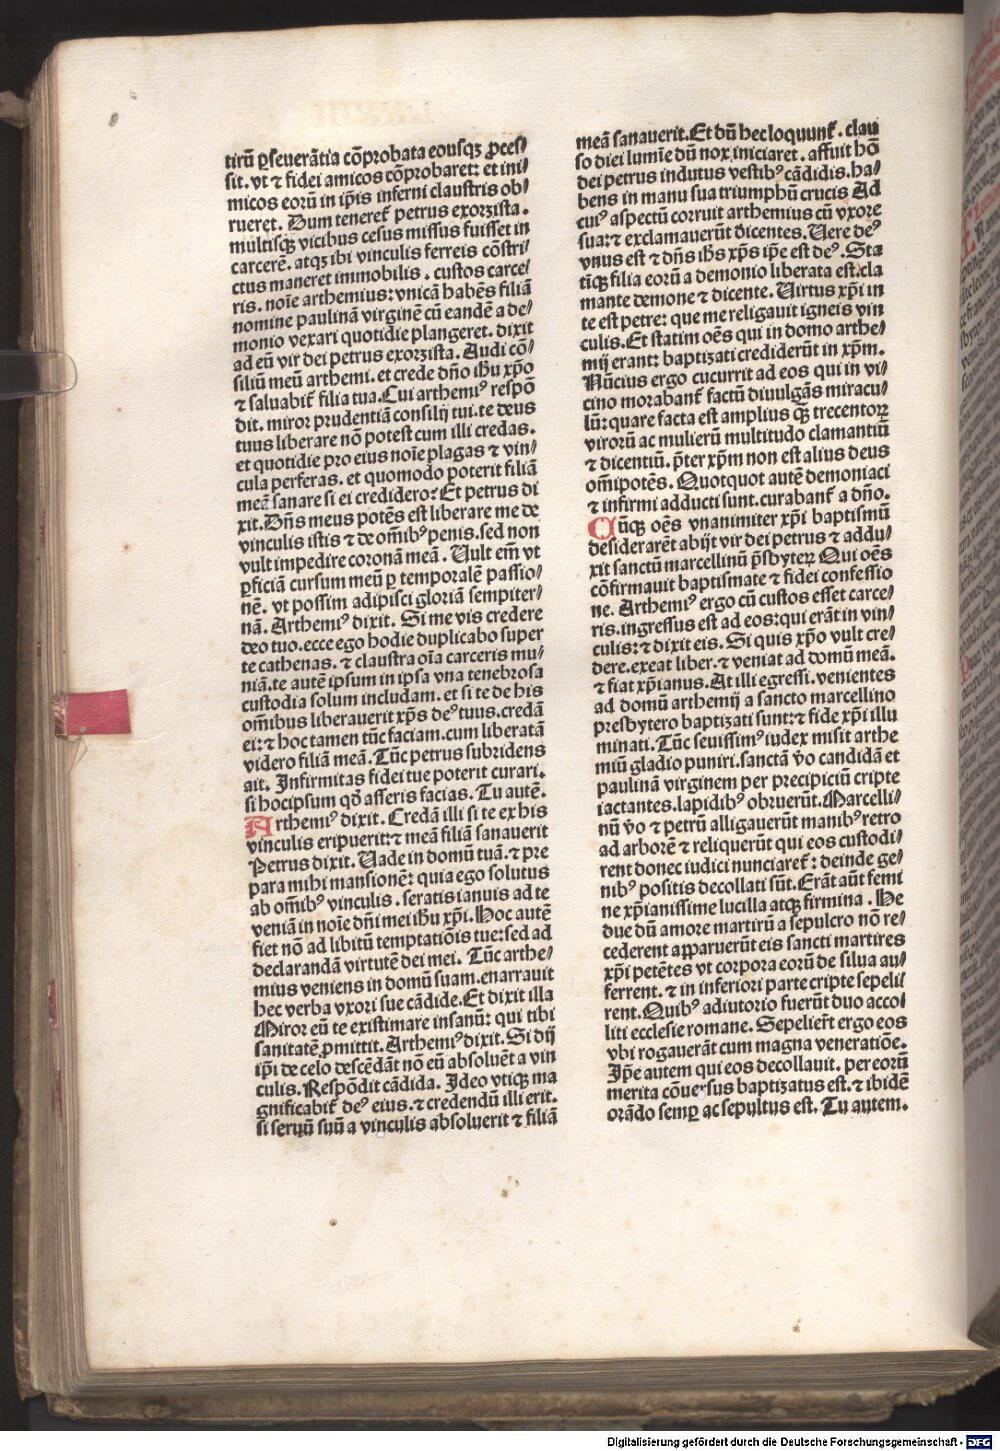 tirū ꝑseuerātia cōprobata eousqꝫ ꝓces⸗
sit. vt ⁊ fidei amicos cōprobaret: et ini⸗
micos eorū in ip̄is inferni claustris ob⸗
rueret. Dum tenereť petrus exorzista.
multisqꝫ vicibus cesus missus fuisset in
carcerē. atqꝫ ibi vinculis ferreis cōstri⸗
ctus maneret immobilis. custos carce⸗
ris. noīe arthemius: vnicā habēs filiā
nomine paulinā virginē cū eandē a de⸗
monio vexari quotidie plangeret. dixit
ad eū vir dei petrus exorzista. Audi cō⸗
siliū meū arthemi. et crede dño ihu xp̄o
⁊ saluabiť filia tua. Cui arthemiꝰ respō
dit. miror prudentiā consilij tui. te deus
tuus liberare nō potest cum illi credas.
et quotidie pro eius noīe plagas ⁊ vin⸗
cula perferas. et quomodo poterit filiā
meā sanare si ei credidero? Et petrus di
xit. Dñs meus potēs est liberare me de
vinculis istis ⁊ de om̄ibꝰ penis. sed non
vult impedire coronā meā. Uult em̄ vt
ꝑficiā cursum meū ꝑ temporalē passio⸗
nē. vt possim adipisci gloriā sempiter⸗
nā. Arthemiꝰ dixit. Si me vis credere
deo tuo. ecce ego hodie duplicabo super
te cathenas. ⁊ claustra oīa carceris mu⸗
niā. te autē ipsum in ipsa vna tenebrosa
custodia solum includam. et si te de his
om̄ibus liberauerit xp̄s deꝰ tuus. credā
ei: ⁊ hoc tamen tūc faciam. cum liberatā
videro filiā meā. Tūc petrus subridens
ait. Infirmitas fidei tue poterit curari.
si hocipsum qð asseris facias. Tu autē.
Arthemiꝰ dixit. Credā illi si te ex his
vinculis eripuerit: ⁊ meā filiā sanauerit
Petrus dixit. Uade in domū tuā. ⁊ pre
para mihi mansionē: quia ego solutus
ab om̄ibꝰ vinculis. seratis ianuis ad te
veniā in noīe dñi mei ihu xp̄i. Hoc autē
fiet nō ad libitū temptatiōis tue: sed ad
declarandā virtutē dei mei. Tūc arthe⸗
mius veniens in domū suam. enarrauit
hec verba vxori sue cādide. Et dixit illa
Miror eū te existimare insanū: qui tibi
sanitatē ꝓmittit. Arthemiꝰ dixit. Si dij
ip̄i de celo descēdāt nō eū absoluēt a vin
culis. Respōdit cādida. Ideo vtiqꝫ ma
gnificabiť deꝰ eius. ⁊ credendū illi erit.
si seruū suū a vinculis absoluerit ⁊ filiā
meā sanauerit. Et dū hec loquunť. clau
so diei lumīe dū nox iniciaret. affuit hō
dei petrus indutus vestibꝰ cādidis. ha⸗
bens in manu sua triumphū crucis Ad
cuiꝰ aspectū corruit arthemius cū vxore
sua: ⁊ exclamauerūt dicentes. Uere deꝰ
vnus est ⁊ dñs ihs xp̄s ip̄e est deꝰ. Sta
tīqꝫ filia eorū a demonio liberata est. cla
mante demone ⁊ dicente. Uirtus xp̄i in
te est petre: que me religauit igneis vin
culis. Et statim oēs qui in domo arthe⸗
mij erant: baptizati crediderūt in xp̄m.
Nūcius ergo cucurrit ad eos qui in vi⸗
cino morabanť factū diuulgās miracu⸗
lū: quare facta est amplius qꝫ̄ trecentoꝝ
virorū ac mulierū multitudo clamantiū
⁊ dicentiū. p̄ter xp̄m non est alius deus
om̄ipotēs. Quotquot autē demoniaci
⁊ infirmi adducti sunt. curabanť a dño.
Cūqꝫ oēs vnanimiter xp̄i baptismū
desiderarēt abijt vir dei petrus ⁊ addu⸗
xit sanctū marcellinū p̄sbyteꝝ Qui oēs
cōfirmauit baptismate ⁊ fidei confessio
ne. Arthemiꝰ ergo cū custos esset carce⸗
ris. ingressus est ad eos: qui erāt in vin⸗
culis: ⁊ dixit eis. Si quis xp̄o vult cre⸗
dere. exeat liber. ⁊ veniat ad domū meā.
⁊ fiat xp̄ianus. At illi egressi. venientes
ad domū arthemij a sancto marcellino
presbytero baptizati sunt: ⁊ fide xp̄i illu
minati. Tūc seuissimꝰ iudex misit arthe
miū gladio puniri. sanctā v̄o candidā et
paulinā virginem per precipiciū cripte
iactantes. lapidibꝰ obruerūt. Marcelli⸗
nū v̄o ⁊ petrū alligauerūt manibꝰ retro
ad arborē ⁊ reliquerūt qui eos custodi⸗
rent donec iudici nunciareť: deinde ge⸗
nibꝰ positis decollati sūt. Erāt aūt femi
ne xp̄ianissime lucilla atqꝫ firmina. He
due dū amore martirū a sepulcro nō re⸗
cederent apparuerūt eis sancti martires
xp̄i petētes vt corpora eorū de silua au⸗
ferrent. ⁊ in inferiori parte cripte sepeli⸗
rent. Quibꝰ adiutorio fuerūt duo acco⸗
liti ecclesie romane. Sepelier̄t ergo eos
vbi rogauerāt cum magna veneratiōe.
Ip̄e autem qui eos decollauit. per eorū
merita cōuersus baptizatus est. ⁊ ibidē
orādo semꝑ ac sepultus est. Tu autem.
Digitalisierung gefördert durch die Deutsche Forschungsgemeinschaft - DFG